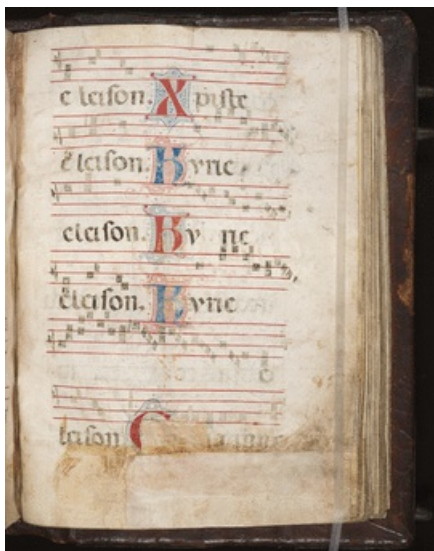 eleison. Xpiste
eleison. Kyrie
eleison. Ky rie
eleison. Kyrie
leison